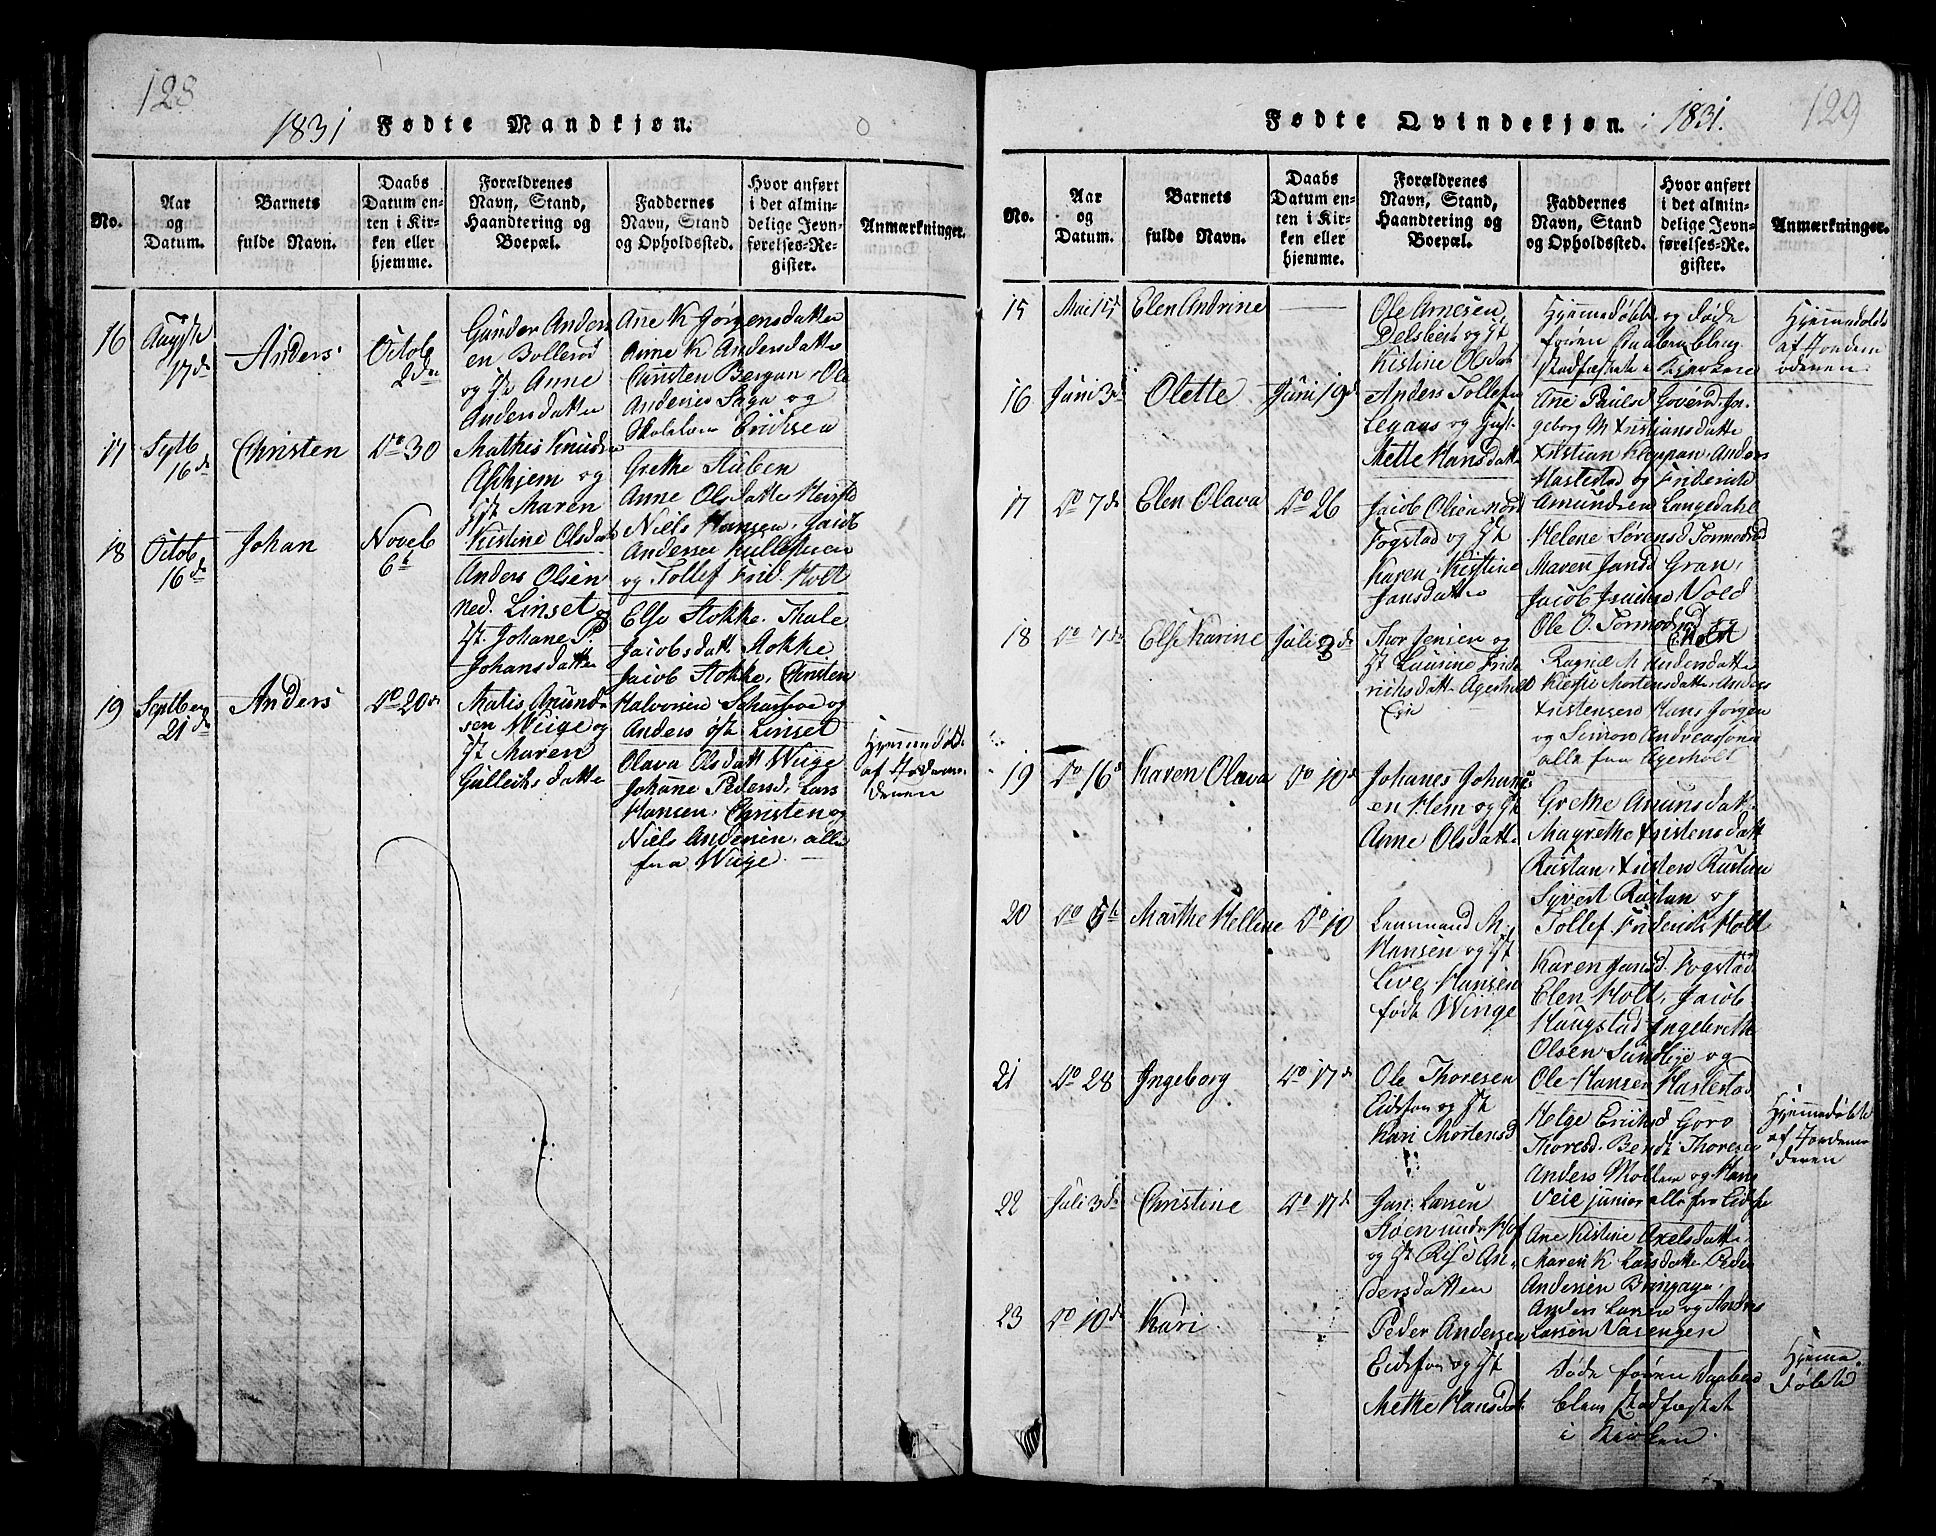 128
1831 Fødte Mandkjøn.
No.
Aar
og
Datum.
Barnets
fulde Navn.
Daabs
Datum en-
ten i Kir-
ken eller
hjemme.
Forældrenes
Navn, Stand,
Haandtering og
Boepæl.
Faddernes
Navn, Stand
og Opholdssted.
Hvor anført
i det almin-
delige Jevn-
førelses-Re-
gister.
Anmærkninger.
16
Auguste
17de
Anders
Octob
2den
Gunder Anders
en Bollerød
og H Anne
Andersdatter
Ane K Jørgensdatter
Anne K Andersdatter
Christen Bergan, Ole
Andersen Saga og
Skolelærer Erichsen
17
Septb
16de
Christen
Do 30
Mathis Knudsen
Askjem og
H Maren
Kistine Olsdatt
Grethe Stubein
Anne Olsdatter
Niels Hansen, Jacob
Andersen
og Tollef Frid. Holt
18
Octob
16de
Johan
Noveb
6te
Anders Olsen
ned. Linset og
H Johane P
Johansdatter
Else Stokke, Thale
Jacobsdatt Stokke
Jacob Stokke, Christen
Halvorsen og
Anders øst Linset
19
Septber
21de
Anders
Do 20de
Matis Amund
sen Wiige og
H Maren
Gulleichsdatter
Olava Olsdatt Wiige
Johane Pedersd, Lars
Hansen, Christen og
Niels Andersen, alle
fra Wiige
Hjemmedøbt
af Jordemo-
deren
129
Fødte Qvindekjøn. 1831.
No.
Aar
og
Datum.
Barnets
fulde Navn.
Daabs
Datum en-
ten i Kir-
ken eller
hjemme.
Forældrenes
Navn, Stand,
Haandtering og
Boepæl.
Faddernes
Navn, Stand
og Opholdssted.
Hvor anført
i det almin-
delige Jevn-
førelses-Re-
gister.
Anmærkninger.
15
Mai 15de
Elen Andrine
Ole Arnesen
og H
Kistine Olsdatt
Hjemmedøbt og døde
førën Daaben blev
stadfæstet i Kjerken
Hjemmedøbt
af Jordemo
deren
16
Juni 3de
Olette
Juni 19de
Anders Tollefsen
Legaas og Hust.
Mette Hansdatter
Ane Paulsd Goverød, In-
geborg M Kristiansdatter
Kristian Kloppan, Anders
Hastestad og Friderich
Amundsen Langedahl
17
Do 7de
Elen Olava
Do 26
Jacob Olsen
Fogstad og H
Karen Kistine
Jansdatter
Helene Sørensd Tormodsrød
Maren Jansd Gran,
Jacob Vold
Ole O. Tormodsrød og
Holt
18
Do 7de
Else Karine
Juli 3de
Thor Jensen og
H Laurine Frid
richsdatter Agerholt
Eie
Ragnil M Andersdatter
Kirsti Mortensdatter, Anders
Kristensen Hans Jørgen
og Simon Andreassønn
alle fra Agerholt
19
Do 16de
Karen Olava
Do 10de
Johanes Johans
en Hem og H
Anne Olsdatter
Grethe Amunsdatt
Magrethe Kristensdatt
Rustan, Kristen Rustan
Syvert Rustan og
Tollef Friderik Holt
20
Do 5te
Marthe Hellene
Do 10
Lensmand M.
Hansen og H
Live Hansen
føde Wiige
Karen Jansd. Fogstad
Elen Holt, Jacob
Haugstad, Ingebreth
Olsen Sundbye og
Ole Hansen Hastestad
21
Do 28
Ingeborg
Do 17de
Ole Thoresen
Eidsfon og H
Kari Mortensd
Helge Eriksd Goro
Thoresd. Bende Thoresen
Anders Mollem og Hans
Veie junior alle fra Eidsfo
Hjemmedøbt
af Jordemo
deren
22
Juli 3de
Christine
Do 17de
Jan Larsen
Hof
og H An-
dersdatten
Ane Kistine Axelsdatter
Maren K Larsdatter Peder
Andersen Bringager
Anders Larsen og Andres
Larsen Vasengen
23
Do 10de
Kari
Peder Andersen
Eidsfon og H
Mette Hansdat
Døde føren Daaben
blev stadfæstet
i Kirken
Hjemme
døbt